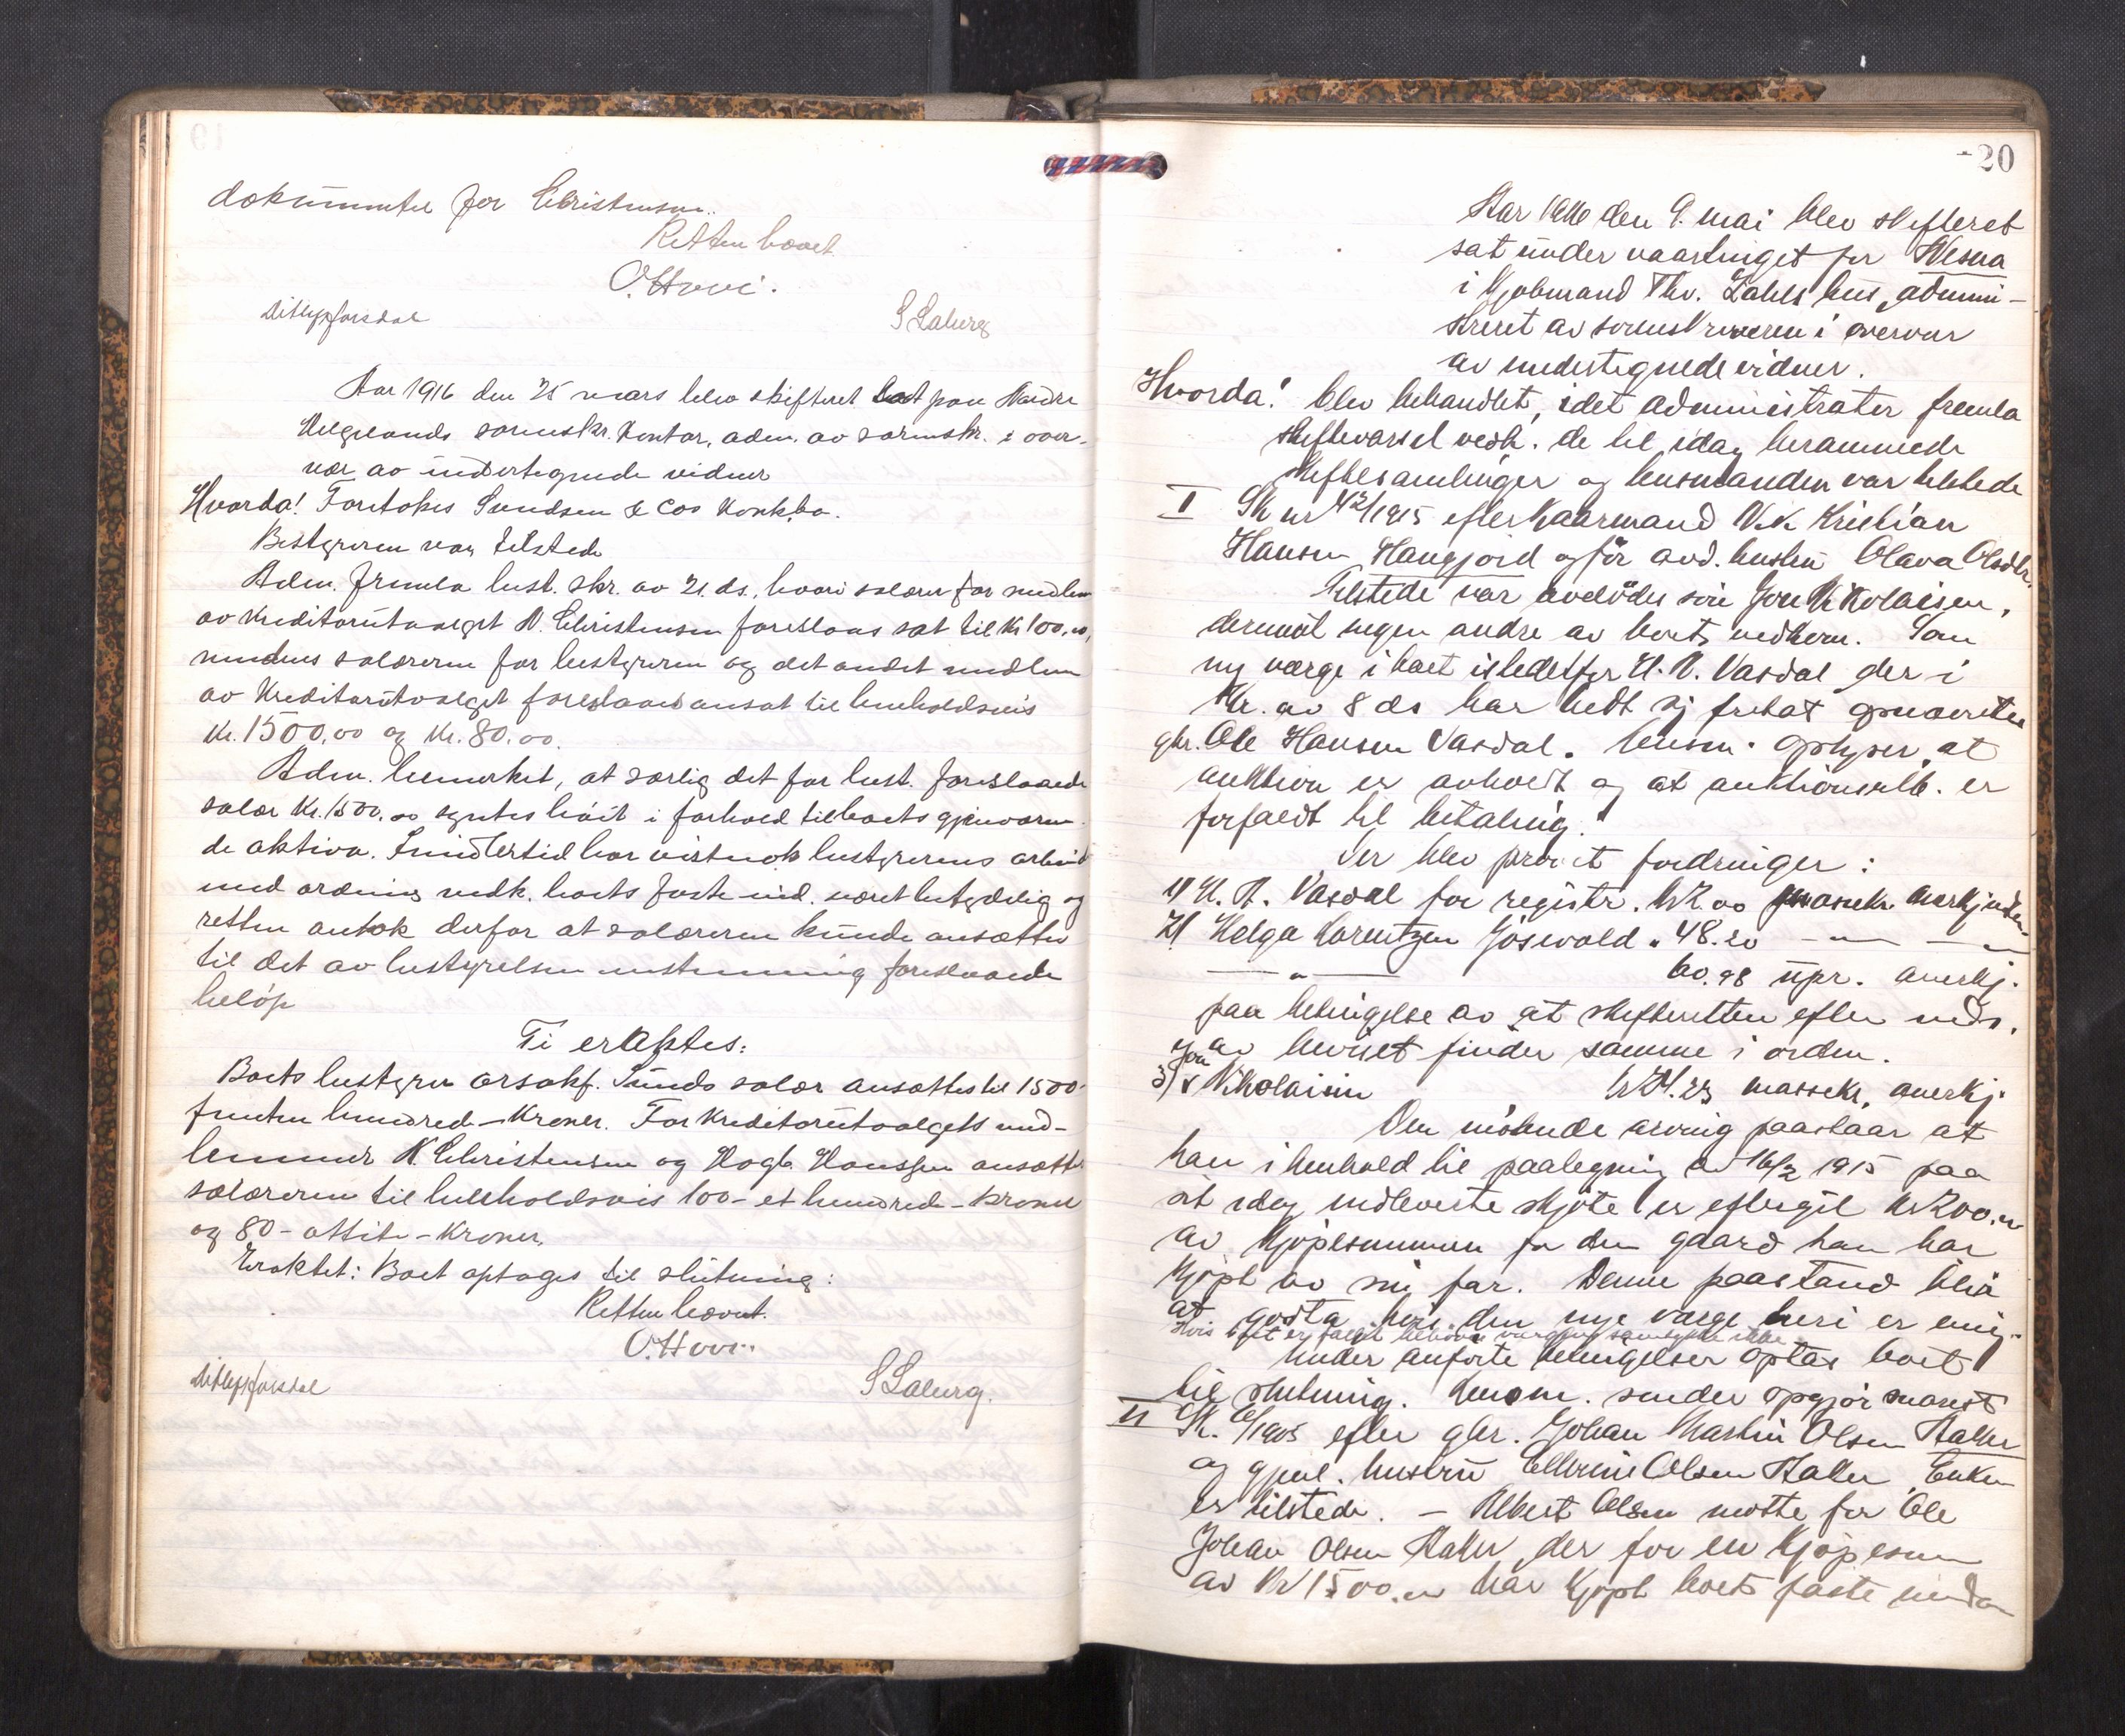 dokumenter for Christensen.
Retten hævet
O. Hovi.
Ditlef Forsdal S Laberg
Aar 1916 den 25 mars blev skifteret sat paa Nordre
Helgelands sorenskr. kontor, adm. av sorenskr. i over-
vær av undertegnede vidner
Hvorda! Foretokes Svendsen & Cos konkbo.
Bestyreren var tilstede
Adm. fremla best. skr. av 21. ds., hvori salærer for medlem
av kreditorutvalget N. Christensen foreslaaes sat til Kr 100,00,
mendens salærerne for bestyreren og det andet medlem
av kreditorutvalget foreslaaes ansat til henholdsvis
Kr. 1500,00 og Kr. 80.00.
Adm. bemerket, at særlig det for best. foreslaaede
salær Kr. 1500.00 syntes höit i forhold til boets gjenværen-
de aktiva. Imidlertid har vistnok bestyrerens arbeid
med ordning vedk. boets faste eiend. været betydelig og
retten antok derfor at salærerne kunde ansættes
til det av bestyrelsen enstemmig foreslaaede
belöp
Ti eraktes:
Boets bestyrer orsakf. Sunds salær ansættes til 1500-
femten hundrede-kroner. For kreditorutvalgets med-
lemmer N. Christensen og Hagb. Hanssen ansættes
salærerne til henholdsvis 100- et hundrede-kroner
og 80-otti-kroner.
Eraktet: Boet optages til slutning:
Retten hævet.
O. Hovi.
Ditlef Forsdal S Laberg.
20
Aar 1916 den 9. mai blev skifteret
sat under vaartinget for Nesna
i kjøbmand Thv. Zahls hus, admini-
streret av sorenskriveren i overvær
av undertegnede vidner.
Hvorda! blev behandlet, idet administrator fremla
skiftevarsel vedk. de til idag berammede
skiftesamlinger og lensmanden var tilstede
I Sk nr 42/1915 efter kaarmand Nik Kristian
Hansen Haugjord og før avd. hustru Olava Olsdtr.
Tilstede var avdödes sön Jon Nikolaisen,
derimot ingen andre av boets vedkom. Som
ny værge i boet istedetfor H. A. Vasdal der i
skr. av 8 ds har bedt sig fritat opnævntes
gbr. Ole Hansen Vasdal. Lensm. oplyser, at
auktion er avholdt og at auktionsbelb. er
forfaldt til betaling.
Der blev prövet fordringer:
1) H. A. Vasdal for registr. kr 2.00 massekr. anerkjendes.
2) Helga Lorentzen " 48.20 — " — " —
— " — 60.98 upr. anerkj.
paa betingelse av at skifteretten efter neds.
av beviset finder samme i orden.
3) Jon Nikolaisen kr 24.23 massekr. anerkj.
Den mötende arving paastaar at
han i henhold til paategning av 16/2 1915 paa
sit idag indleverte skjöte er eftergit kr 200.00
av kjöpesummen for den gaard han har
kjöpt av sin far. Denne paastand blir
at godta hvis den nye værge heri er enig.
Under anførte betingelser optas boet
til slutning. Lensm. sender opgjör snarest
II Sk. 6/1905 efter gbr. Johan Martin Olsen Haller
og gjenl. hustru Ellerine Olsen Haller. Enken
er tilstede. — Albert Olsen mötte for Ole
Johan Olsen Haller, der for en kjöpesum
av kr 1500.00 har kjöpt boets faste eiendom